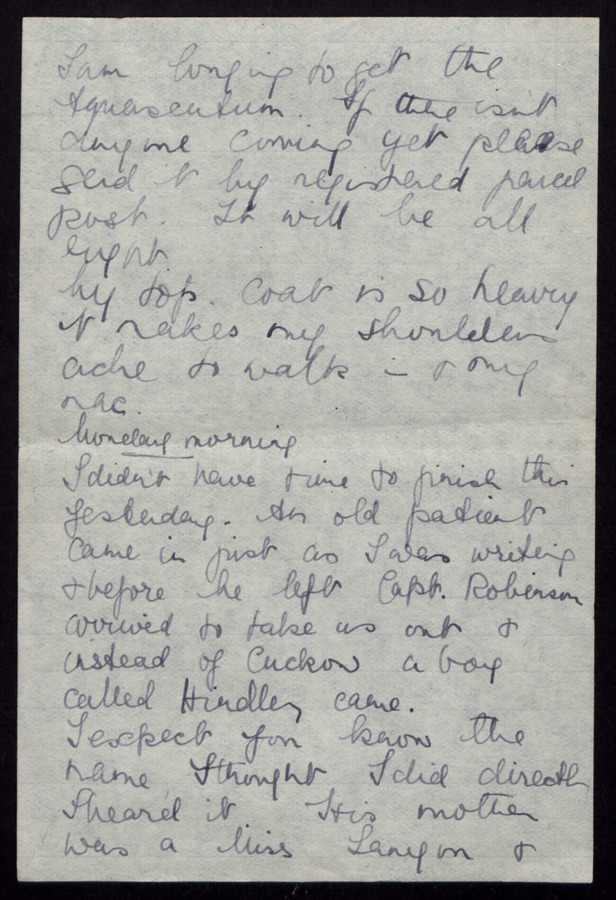 I am longing to get the
Aquascutum. If there isn't
anyone coming yet please
send it by registered parcel
post. It will be all
right
My top. coat is so heavy
it makes my shoulders
ache to walk in & my
mac.
Monday morning
I didn't have time to finish this
yesterday. An old patient
came in just as I was writing
& before he left Capt. Robinson
arrived to take us out &
instead of Cuckow a boy
called Hindley came.
I expect you know the
name I thought I did directly
I heard it. His mother
was a Miss &